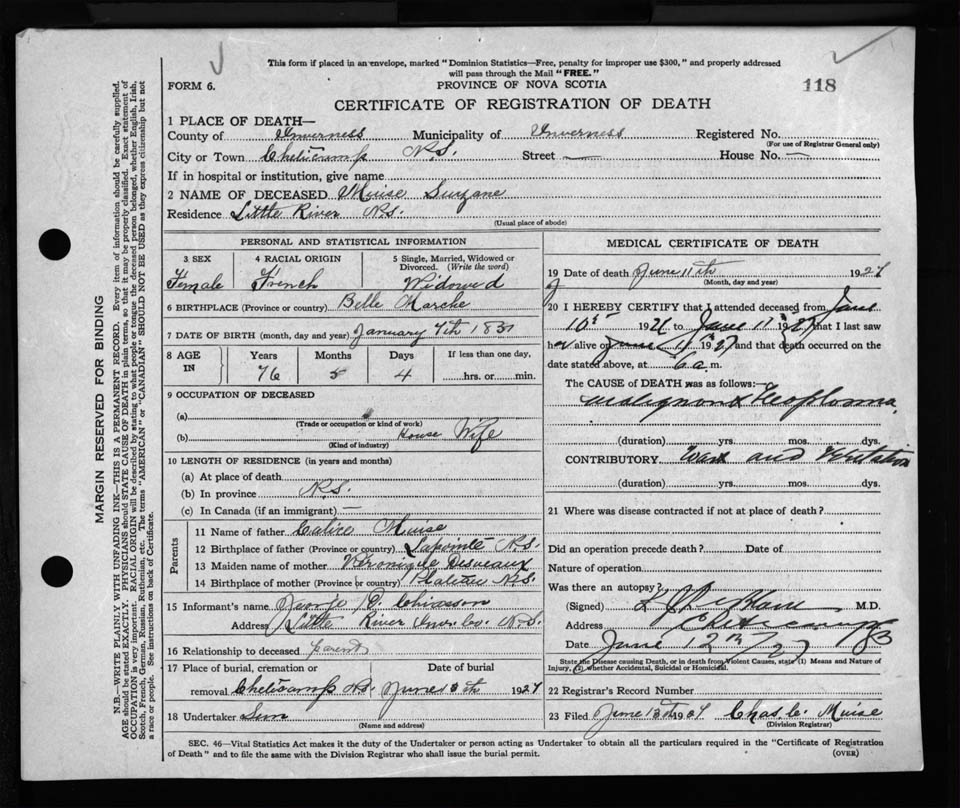 This form if placed in an envelope, marked "Dominion Statistics—Free, penalty for improper use $300," and properly addressed
will pass through the Mail "FREE."
FORM 6.
PROVINCE OF NOVA SCOTIA
118
CERTIFICATE OF REGISTRATION OF DEATH
1 PLACE OF DEATH—
County of Inverness Municipality of Inverness Registered No.
(For use of Registrar General only)
City or Town Cheticamp N.S. Street — House No. —
If in hospital or institution, give name
2 NAME OF DECEASED Muise Suzane
Residence Little River N.S.
(Usual place of abode)
PERSONAL AND STATISTICAL INFORMATION
3 SEX 4 RACIAL ORIGIN 5 Single, Married, Widowed or Divorced. (Write the word)
Female French Widowed
6 BIRTHPLACE (Province or country) Belle Marche
7 DATE OF BIRTH (month, day and year) January 7th
8 AGE IN Years Months Days If less than one day,
76 5 4 hrs. or min.
9 OCCUPATION OF DECEASED
(a)
(Trade or occupation or kind of work)
(b) House Wife
(Kind of industry)
10 LENGTH OF RESIDENCE (in years and months)
(a) At place of death
(b) In province N.S.
(c) In Canada (if an immigrant) —
Parents
11 Name of father Muise
12 Birthplace of father (Province or country) Lapointe N.S.
13 Maiden name of mother Véronique Desveaux
14 Birthplace of mother (Province or country) N.S.
15 Informant's name D. Chiasson
Address Little River Inv. Co. N.S.
16 Relationship to deceased parent
17 Place of burial, cremation or Date of burial
removal Cheticamp N.S. June 13th 1927
18 Undertaker
(Name and address)
MEDICAL CERTIFICATE OF DEATH
19 Date of death June 11th 1927
(Month, day and year)
20 I HEREBY CERTIFY that I attended deceased from June
10 192 to June 11 1927 that I last saw
her alive on June 11 1927 and that death occurred on the
date stated above, at 6 a. m.
The CAUSE of DEATH was as follows:—
Malignant
(duration) yrs. mos. dys.
CONTRIBUTORY and
(duration) yrs. mos. dys.
21 Where was disease contracted if not at place of death?
Did an operation precede death? Date of
Nature of operation
Was there an autopsy?
(Signed) M.D.
Address Cheticamp
Date June 12th /27
State the Disease causing Death, or in death from Violent Causes, state (1) Means and Nature of
Injury, (2) whether Accidental, Suicidal or Homicidal.
22 Registrar's Record Number
23 Filed June 13th 1927 Chas. C. Muise
(Division Registrar)
SEC. 46—Vital Statistics Act makes it the duty of the Undertaker or person acting as Undertaker to obtain all the particulars required in the "Certificate of Registration
of Death" and to file the same with the Division Registrar who shall issue the burial permit.
(OVER)
MARGIN RESERVED FOR BINDING
N.B.—WRITE PLAINLY WITH UNFADING INK—THIS IS A PERMANENT RECORD. Every item of information should be carefully supplied.
AGE should be stated EXACTLY. PHYSICIANS should STATE CAUSE OF DEATH in plain terms, so that it may be properly classified. Exact statement of
OCCUPATION is very important. RACIAL ORIGIN will be described by stating to what people or tongue the deceased person belonged, whether English, Irish,
Scotch, French, German, Russian, Ruthenian, etc. The terms "AMERICAN" or "CANADIAN" SHOULD NOT BE USED as they express citizenship but not
a race or people. See instructions on back of Certificate.